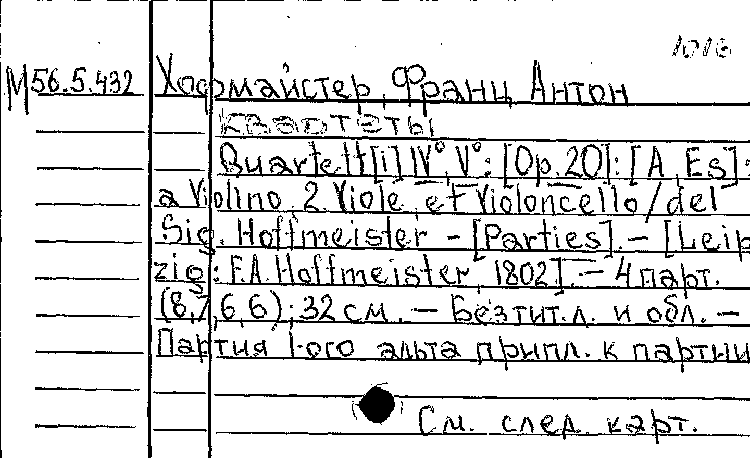 1016
М56.5.432 Хофмайстер, Франц Антон
квартеты
Quartett[i] IV°, V°: [Op. 20]: [A, Es]:
a Violino, 2 Viole, et Violoncello / del
Sig. Hoffmeister - [Parties]. — [Leip
zig: F.A. Hoffmeister, 1802]. — 4 парт.
(8,7,6,6); 32 см. — Без тит. л. и обл. —
Партия 1-ого альта припл. к партии
См. след. карт.